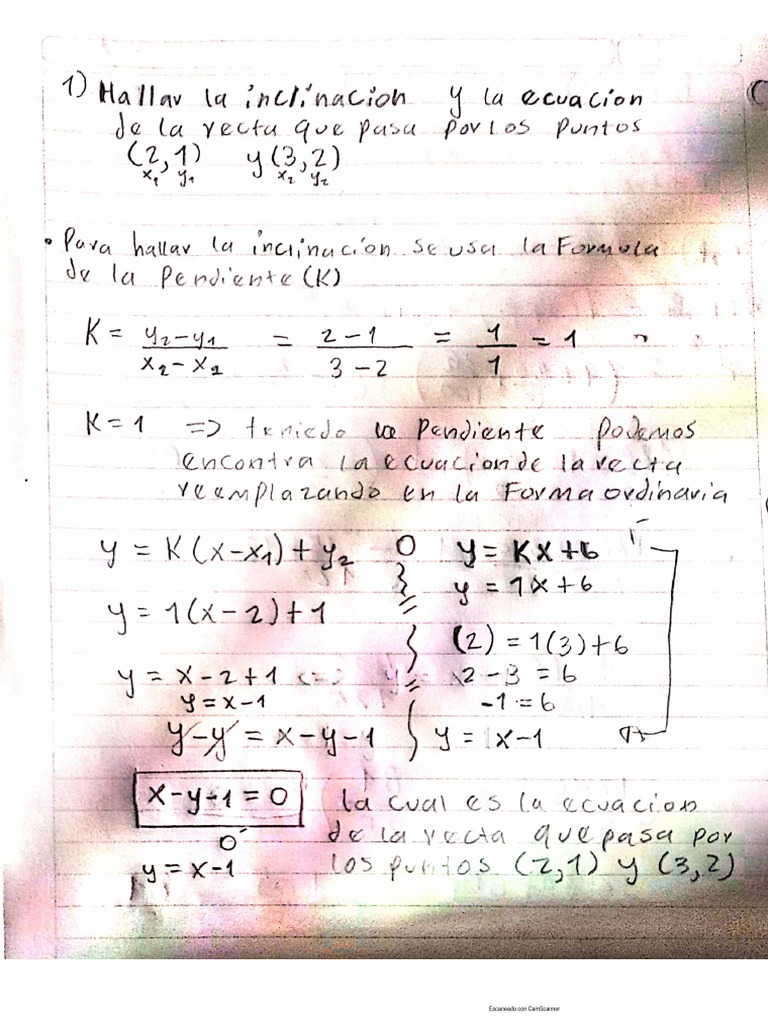 1) Hallar la inclinacion y la ecuacion
de la recta que pasa por los puntos
(2,1) y (3,2)
x₁ y₁ x₂ y₂
• Para hallar la inclinacion se usa la Formula
de la Pendiente (K)
K = y₂-y₁ / x₂-x₁ = 2-1 / 3-2 = 1/1 = 1
K=1 => teniedo la Pendiente podemos
encontra la ecuacion de la recta
reemplazando en la Forma ordinaria
y = K(x-x₁)+y₂ O y = Kx+6
y = 1x+6
y = 1(x-2)+1
(2) = 1(3)+6
y = x-2+1
2-3 = 6
y = x-1
-1 = 6
y-y = x-y-1 y = x-1
x-y-1=0 la cual es la ecuacion
o de la recta que pasa por
y = x-1 los puntos (2,1) y (3,2)
Escaneado con CamScanner